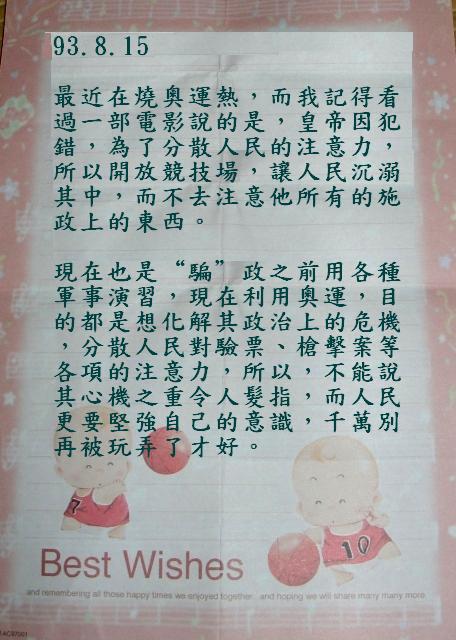 93.8.15
最近在燒奧運熱，而我記得看
過一部電影說的是，皇帝因犯
錯，為了分散人民的注意力，
所以開放競技場，讓人民沉溺
其中，而不去注意他所有的施
政上的東西。
現在也是“騙”政之前用各種
軍事演習，現在利用奧運，目
的都是想化解其政治上的危機
，分散人民對驗票、槍擊案等
各項的注意力，所以，不能說
其心機之重令人髮指，而人民
更要堅強自己的意識，千萬別
再被玩弄了才好。
7
10
Best Wishes
and remembering all those happy times we enjoyed together and hoping we will share many many more